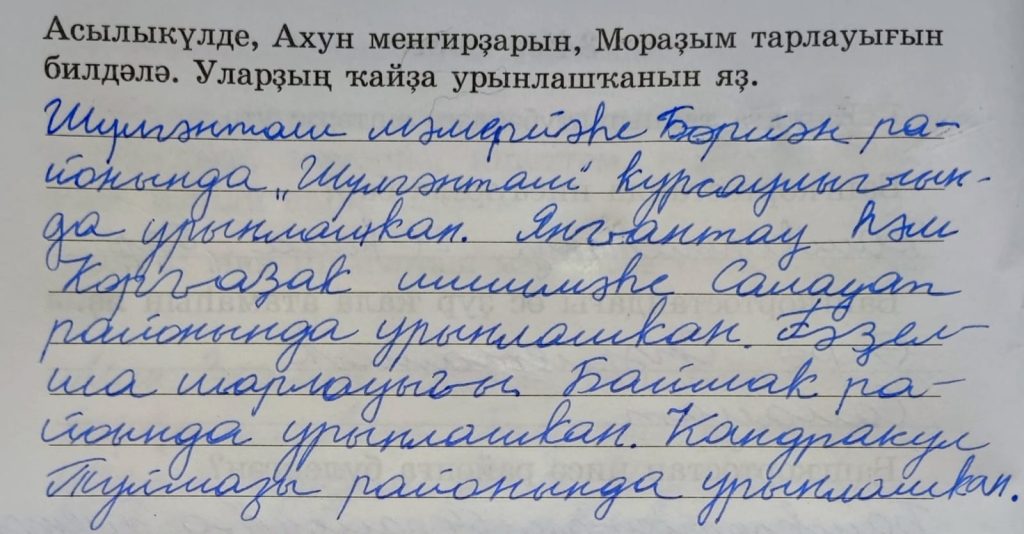 Асылыкүлде, Ахун менгирҙарын, Мораҙым тарлауығын
билдәлә. Уларҙың ҡайҙа урынлашҡанын яҙ.
Шүлгәнташ мәмерйәһе Бөрйән ра-
йонында „Шүлгәнташ" курсаулығын-
да урынлашкан. Янғантау һәм
Корғаҙак шишмәһе Салауат
районында урынлашкан. Ғәҙел-
ша шарлауығы Баймак ра-
йоында урынлашкан. Кандракул
Туймазы районында урынлашкан.